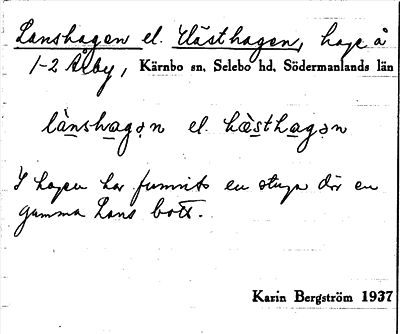 Lanshagen el. Hästhagen, hage å
1-2 Ålby, Kärnbo sn, Selebo hd, Södermanlands län
lànshagən el. hæ̀sthagən
I hagen har funnits en stuga där en
gumma Lans bott.
Karin Bergström 1937